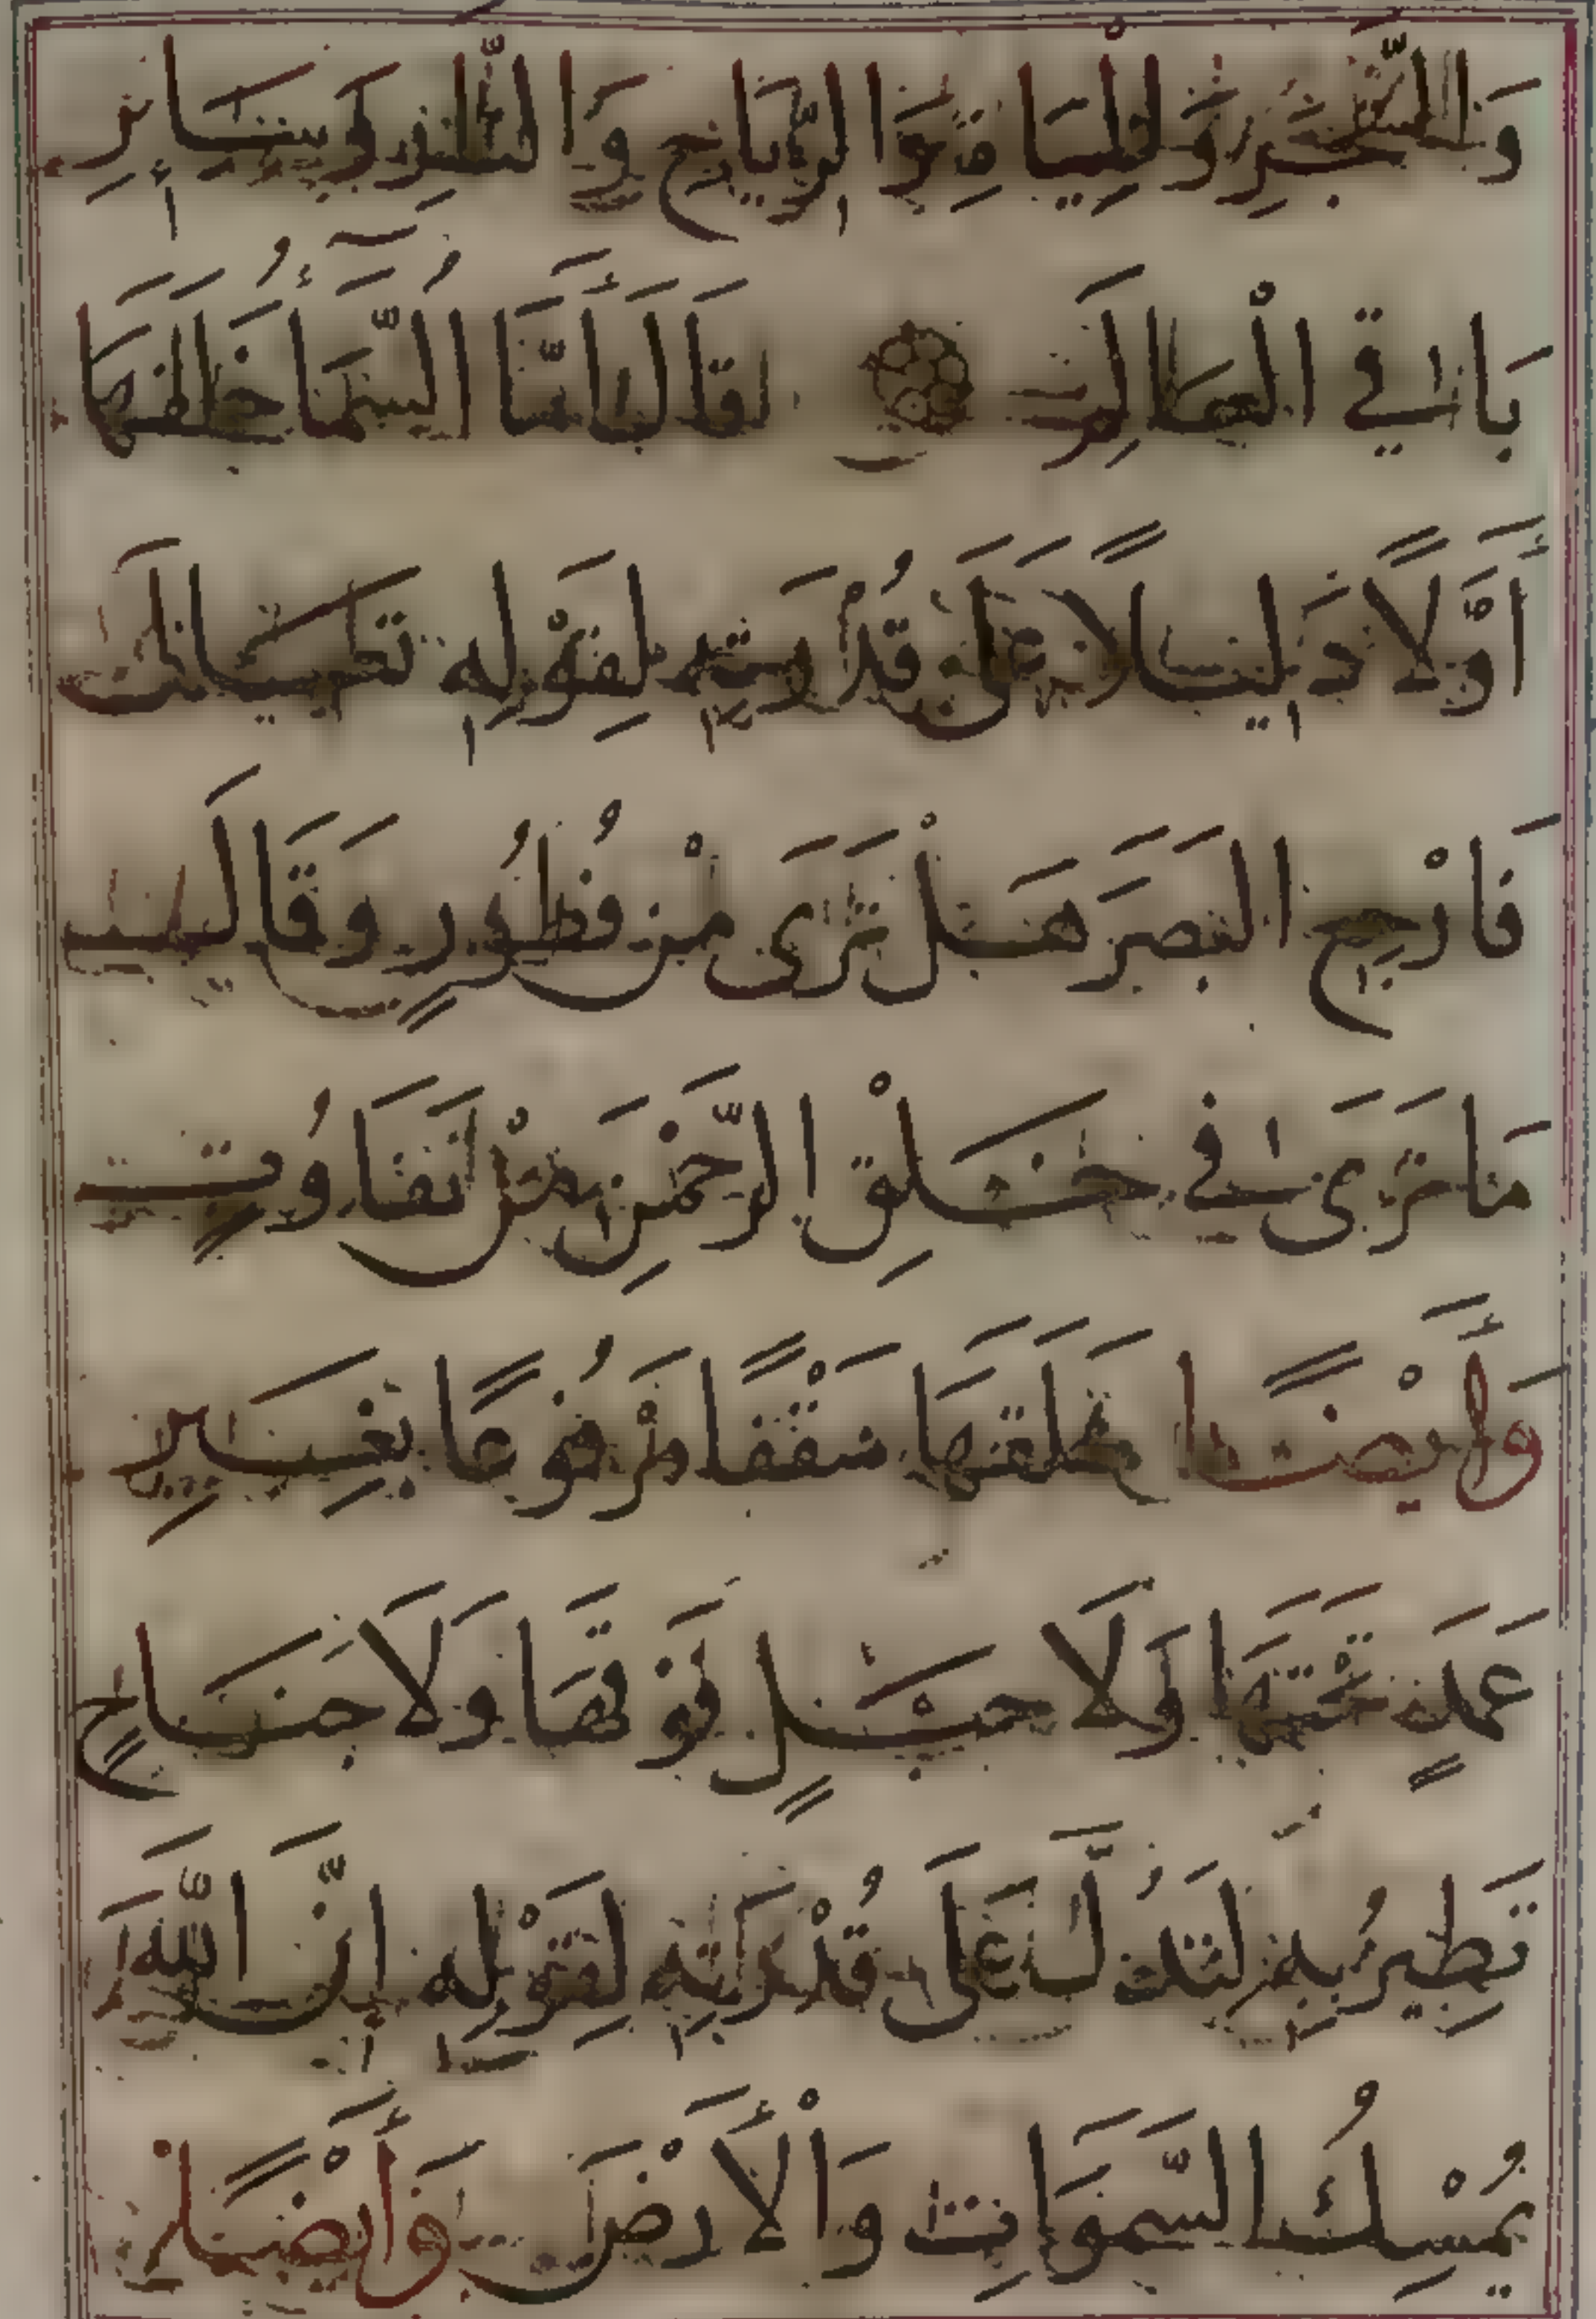 وَالشَّجَرِ وَالْمِيَاهِ وَالرِّيَاحِ وَالنَّارِ وَسَائِرِ
بَاقِي الْعَالَمِ لقَالَ أَمَّا السَّمَآءُ خَلَقَهَا
أَوَّلًا دَلِيلًا عَلَى قُدْرَتِهِ لِقَوْلِهِ تَعَالَى
فَارْجِعِ الْبَصَرَ هَلْ تَرَى مِنْ فُطُورٍ وَقَالَ
مَا تَرَى فِي خَلْقِ الرَّحْمَنِ مِنْ تَفَاوُتٍ
وَأَيْضًا خَلَقَهَا سَقْفًا مَرْفُوعًا بِغَيْرِ
عَمَدٍ تَحْتَهَا وَلَا حَبْلٍ فَوْقَهَا وَلَا جَنَاحٍ
تَطِيرُ بِهِ لِتَدُلَّ عَلَى قُدْرَتِهِ لِقَوْلِهِ إِنَّ اللَّهَ
يُمْسِكُ السَّمَوَاتِ وَالْأَرْضَ وَأَيْضًا